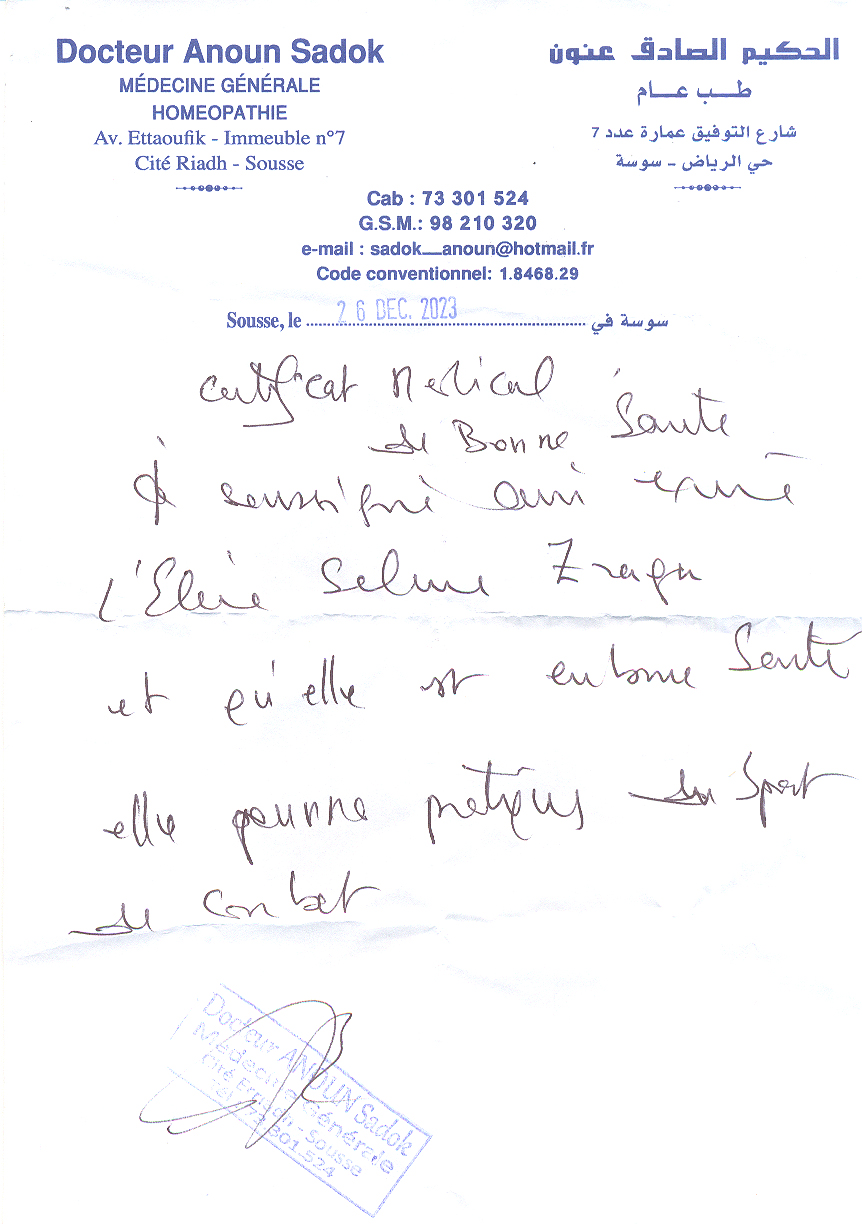 Docteur Anoun Sadok
MÉDECINE GÉNÉRALE
HOMEOPATHIE
Av. Ettaoufik - Immeuble n°7
Cité Riadh - Sousse
الحكيم الصادق عنون
طب عام
شارع التوفيق عمارة عدد 7
حي الرياض - سوسة
Cab : 73 301 524
G.S.M.: 98 210 320
e-mail : sadok_anoun@hotmail.fr
Code conventionnel: 1.8468.29
Sousse, le 26 DEC. 2023 سوسة في
Certificat Medical
de Bonne Santé
Je soussigné avoir examiné
l'Elève Selme
et qu'elle est en bonne Santé
elle pourra pratiquer du Sport
de combat
Docteur ANOUN Sadok
Médecine Générale
Cité Erriadh - Sousse
Tél 73.301.524